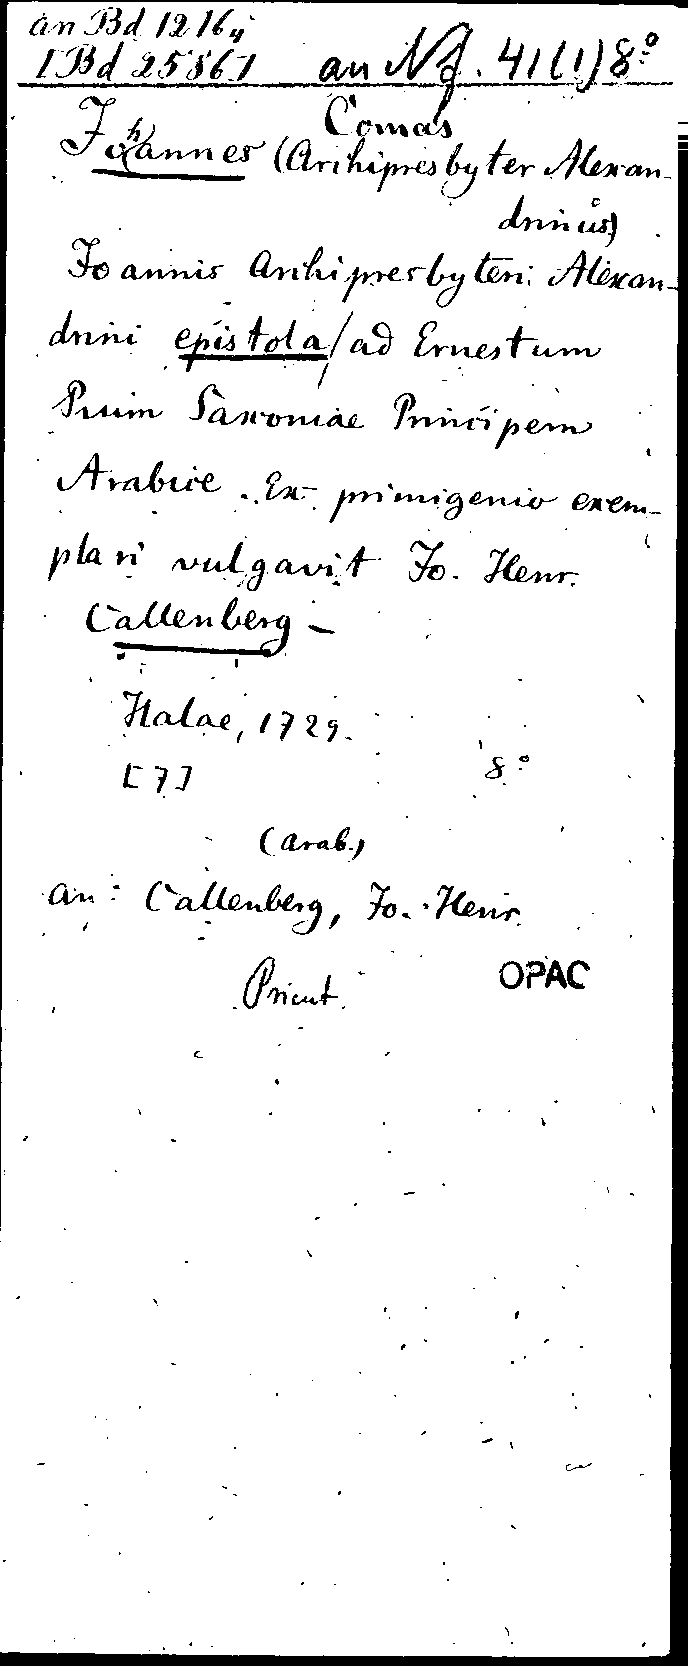 an Bd 1216y
[Bd 25867 an Nf. 41(1)8°
Comas
Johannes (Archipresbyter Alexan-
drinus)
Joannis Archipresbyteri Alexan-
drini epistola/ad Ernestum
Pium Saxoniae Principem
Arabice. Ex primigenio exem-
plari vulgavit Jo. Henr.
Callenberg –
Halae, 1729.
[7] 8°
(arab.)
an: Callenberg, Jo. Henr.
OPAC